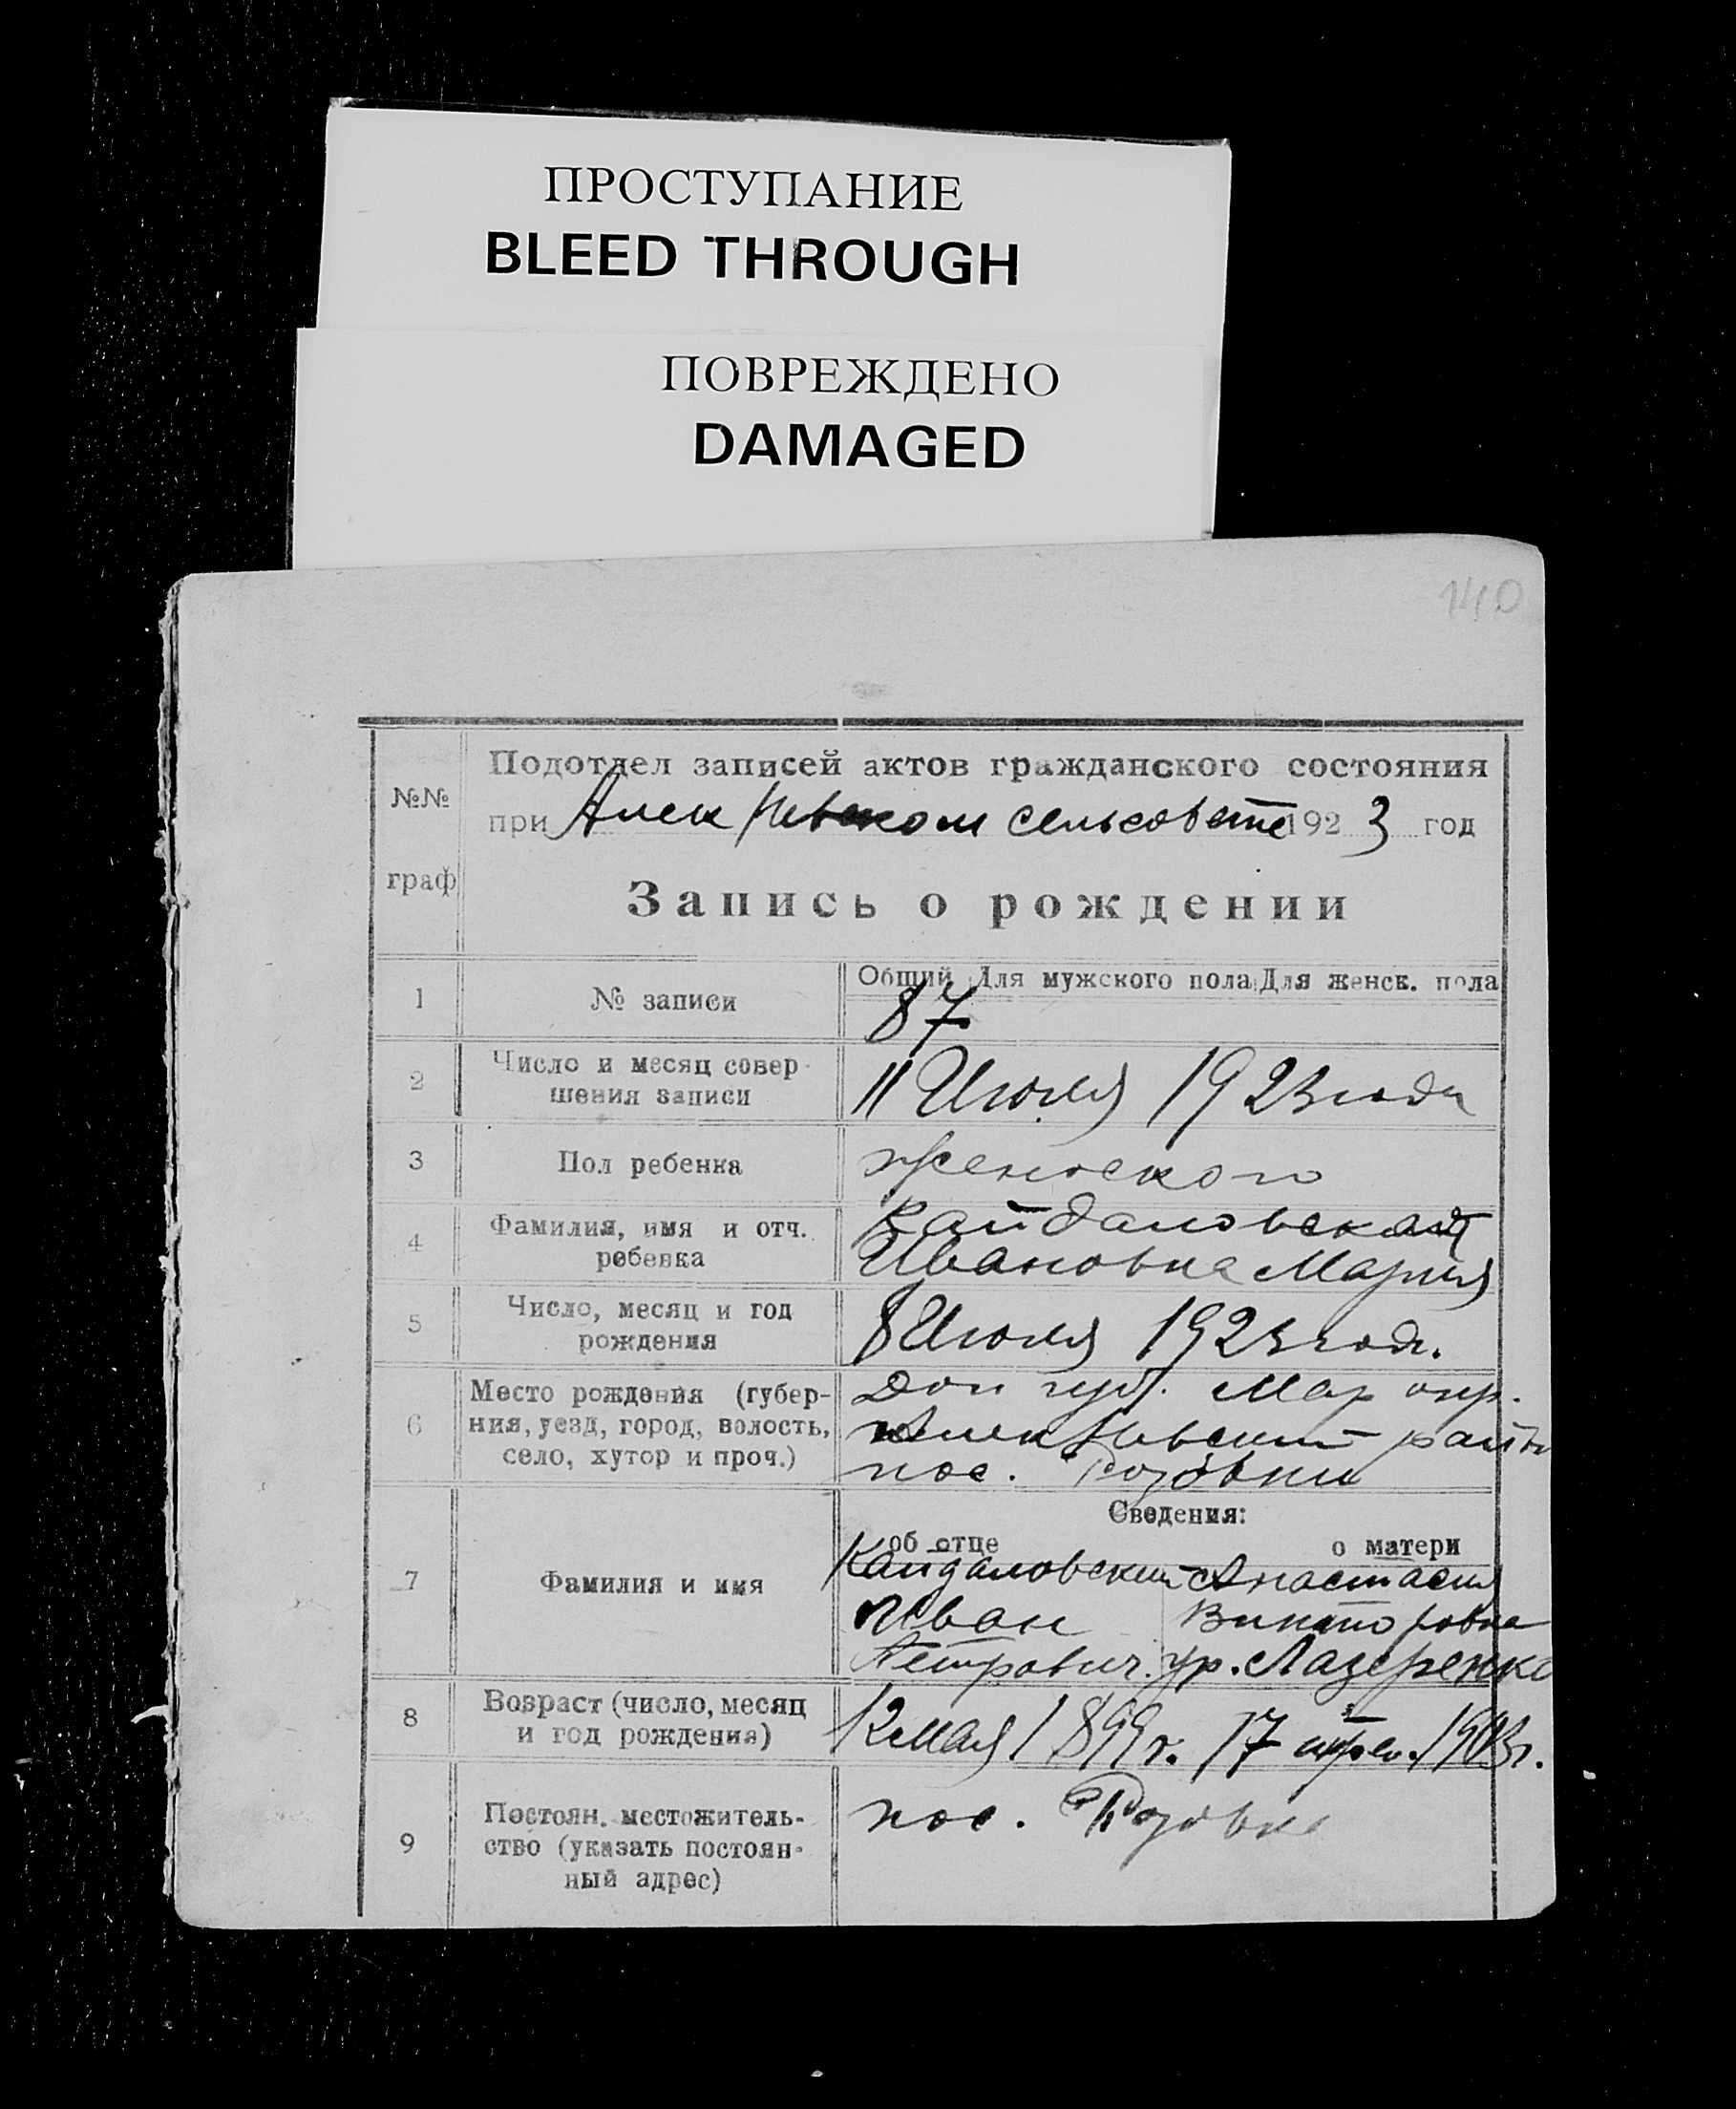 ПРОСТУПАНИЕ
BLEED THROUGH
ПОВРЕЖДЕНО
DAMAGED
140
№№
граф
Подотдел записей актов гражданского состояния
при Алек Невском сельсовете 1923 год
Запись о рождении
Общий Для мужского пола Для женск. пола
1 № записи 87
2 Число и месяц совер-
шения записи
11 Июля 1923 года
3 Пол ребенка женского
4 Фамилия, имя и отч.
ребенка
Кайдаловская
Ивановна Мария
5 Число, месяц и год
рождения
8 Июля 1923 год.
6 Место рождения (губер-
ния, уезд, город, волость,
село, хутор и проч.)
Дон губ. Мар окр.
Алек Невский район
пос. Розовка
Сведения:
об отце о матери
7 Фамилия и имя
Кайдаловский Анастасия
Иван Викторовна
Петрович. ур. Лазеренко
8 Возраст (число, месяц
и год рождения)
12 мая 1899 г. 17 1903 г.
9 Постоян. местожитель-
ство (указать постоян-
ный адрес)
пос. Розовка